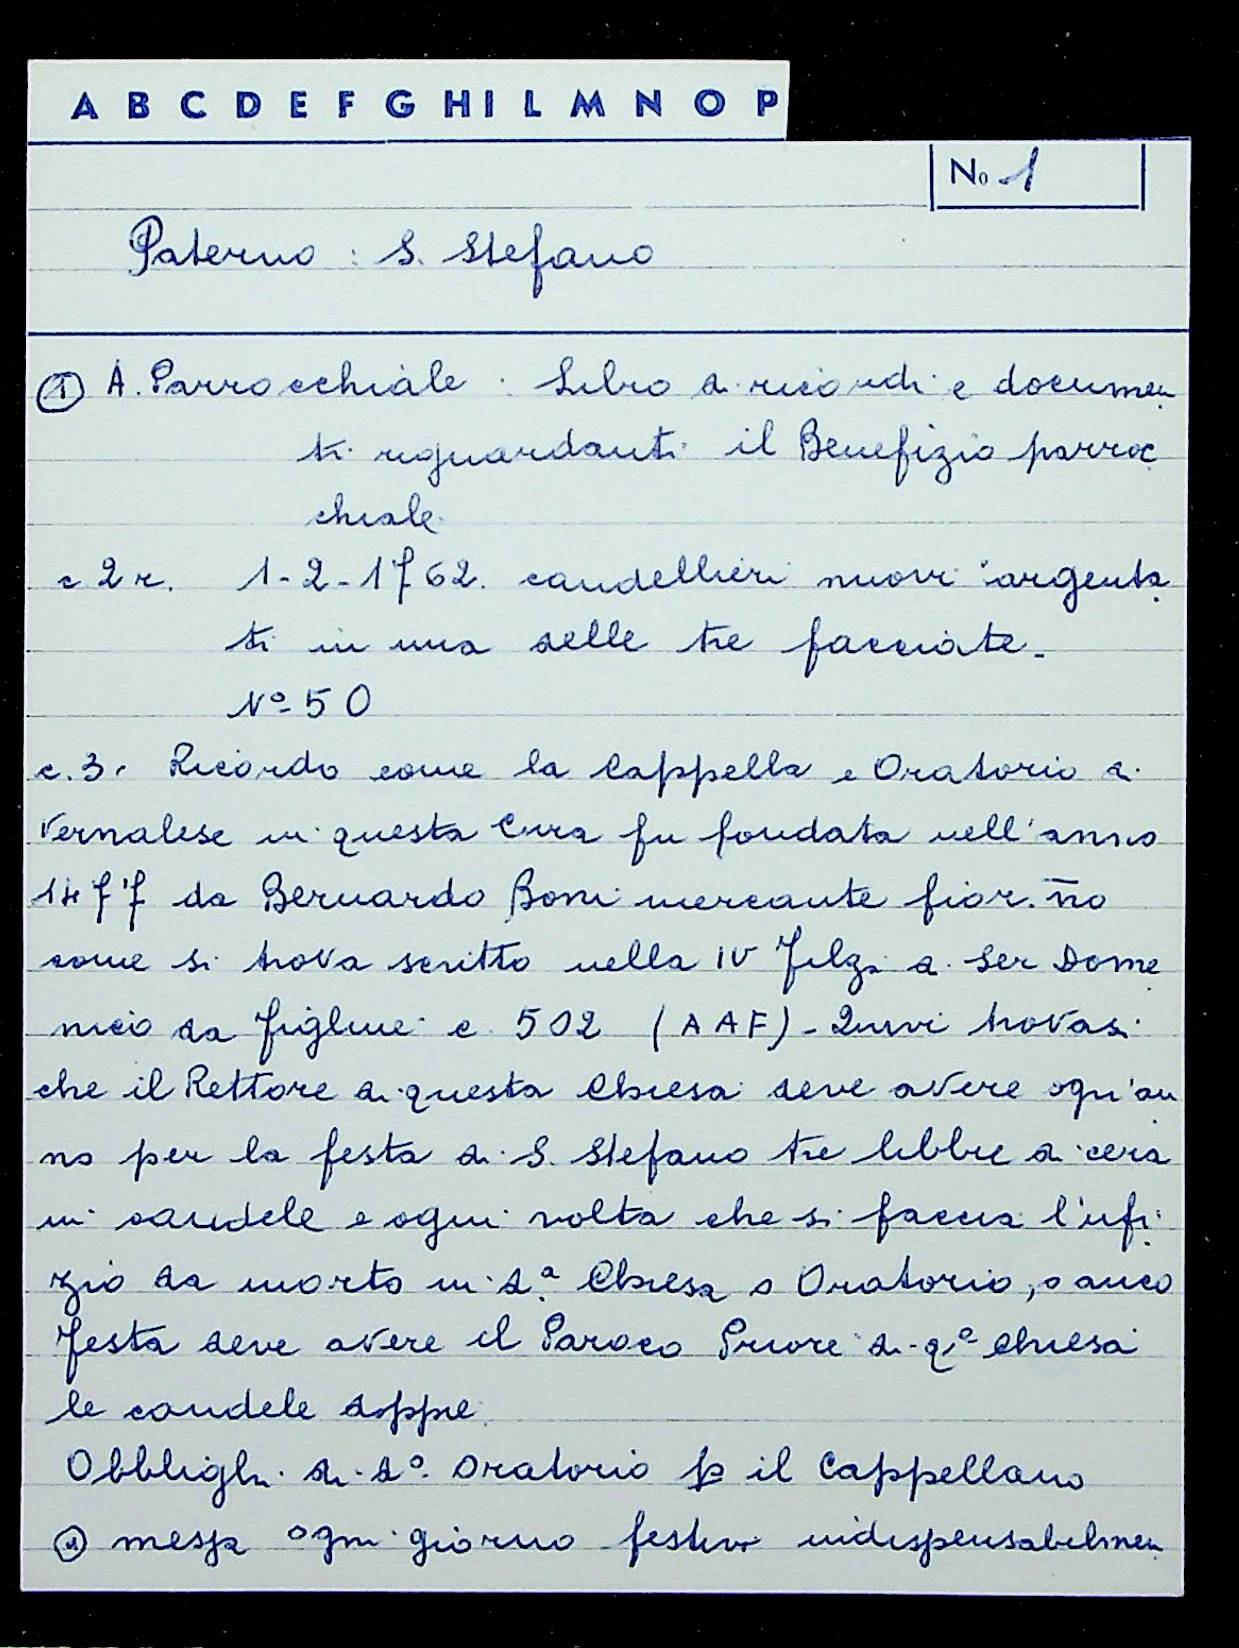 A B C D E F G H I L M N O P
No 1
Paterno : S. Stefano
① A. Parrocchiale : Libro di ricordi e documen
ti riguardanti il Benefizio parroc
chiale.
c 2 r. 1-2-1762. candellieri nuovi argenta
ti in una delle tre facciate.
N° 50
c. 3. Ricordo come la Cappella e Oratorio di
Vernalese in questa Cura fu fondata nell'anno
1477 da Bernardo Boni mercante fior.no
come si trova scritto nella IV Filza di Ser Dome
nico da Figline c. 502 (AAF) - Quivi trovasi
che il Rettore di questa Chiesa deve avere ogn'an
no per la festa di S. Stefano tre libbre di cera
in candele e ogni volta che si faccia l'ufi
zio da morto in d.a Chiesa o Oratorio, o anco
festa deve avere il Paroco Priore di q.a Chiesa
le candele doppie.
Obblighi di d.o Oratorio p il Cappellano
① messa ogni giorno festivo indispensabilmen